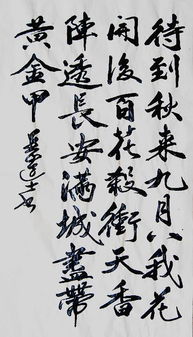 待到秋来九月八我花
開後百花殺衝天香
陣透長安滿城盡帶
黄金甲